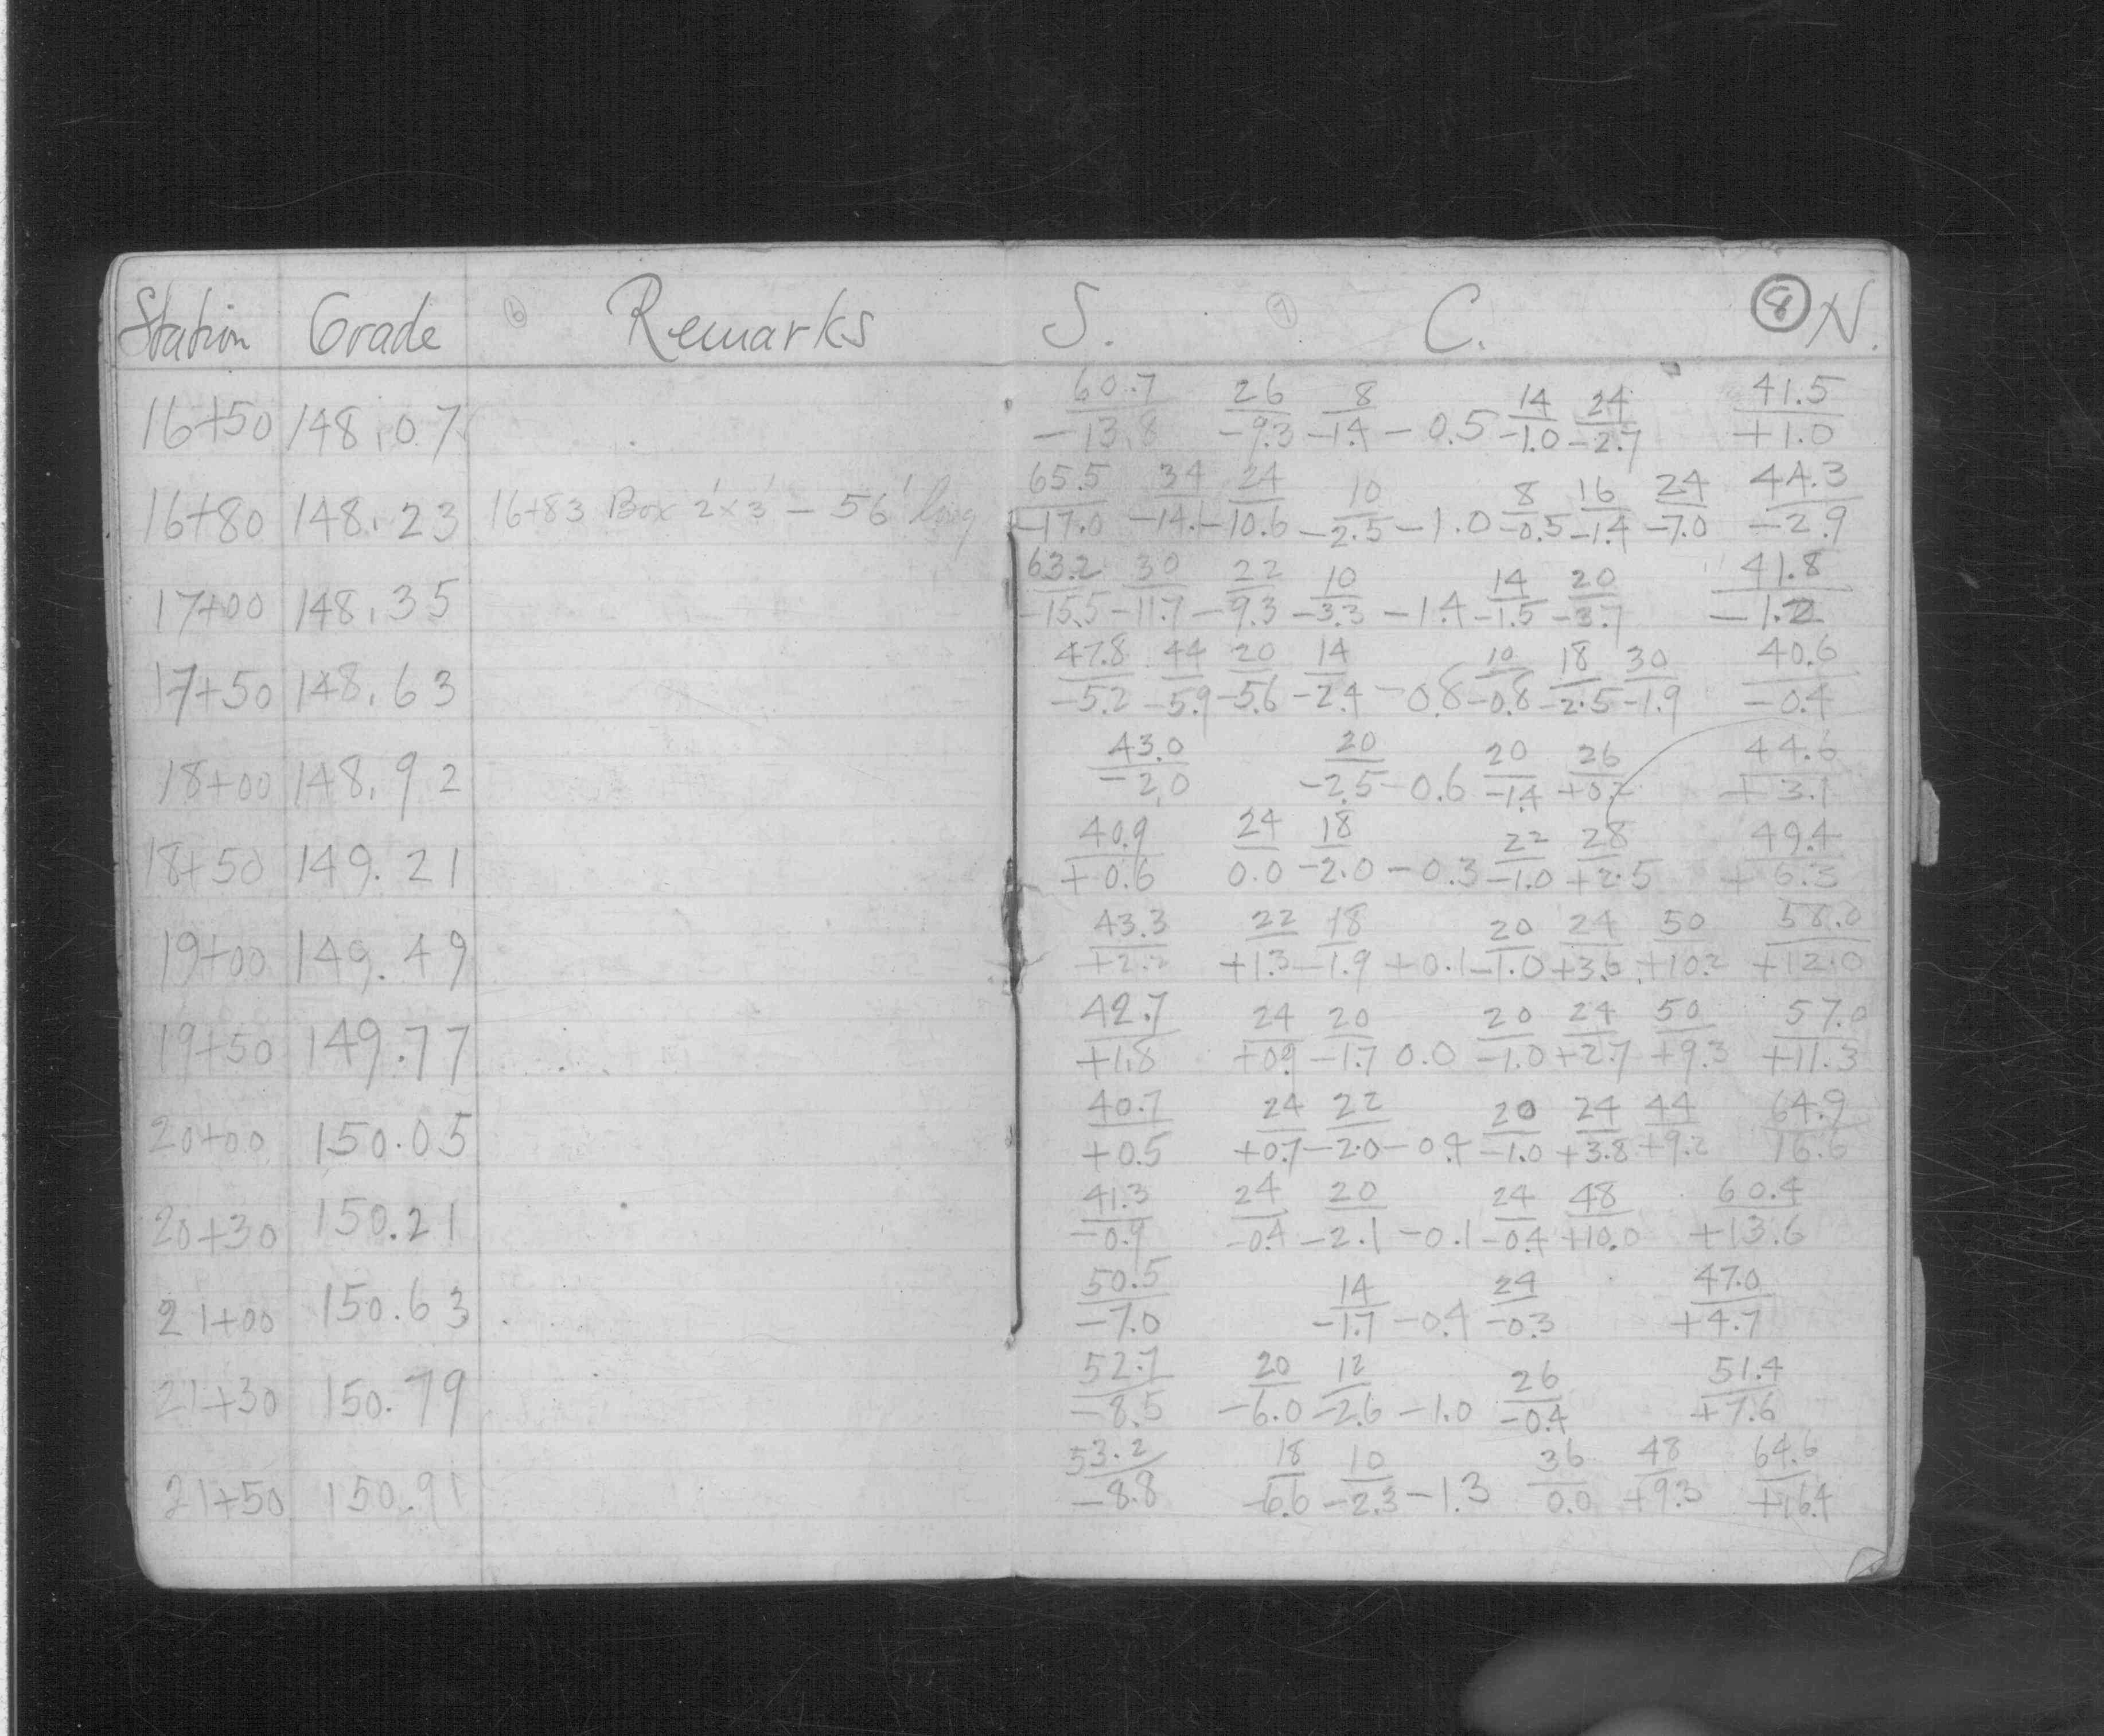 Station Grade 6 Remarks S. 7 C. 8 N.
16+50 148.07 60.7/-13.8 26/-9.3 8/-1.4 -0.5 14/-1.0 24/-2.7 41.5/+1.0
16+80 148.23 16+83 Box 2'x3' - 56' long 65.5/-17.0 34/-14.1 24/-10.6 10/-2.5 -1.0 8/-0.5 16/-1.4 24/-7.0 44.3/-2.9
17+00 148.35 63.2/-15.5 30/-11.7 22/-9.3 10/-3.3 -1.4 14/-1.5 20/-3.7 41.8/-1.2
17+50 148.63 47.8/-5.2 44/-5.9 20/-5.6 14/-2.4 -0.8 10/-0.8 18/-2.5 30/-1.9 40.6/-0.4
18+00 148.92 43.0/-2.0 20/-2.5 -0.6 20/-1.4 26/+0.2 44.6/+3.1
18+50 149.21 40.9/+0.6 24/0.0 18/-2.0 -0.3 22/-1.0 28/+2.5 49.4/+6.3
19+00 149.49 43.3/+2.2 22/+1.3 18/-1.9 +0.1 20/-1.0 24/+3.6 50/+10.2 58.0/+12.0
19+50 149.77 42.7/+1.8 24/+0.9 20/-1.7 0.0 20/-1.0 24/+2.7 50/+9.3 57.0/+11.3
20+00 150.05 40.7/+0.5 24/+0.7 22/-2.0 -0.4 20/-1.0 24/+3.8 44/+9.2 64.9/16.6
20+30 150.21 41.3/-0.9 24/-0.4 20/-2.1 -0.1 24/-0.4 48/+10.0 60.4/+13.6
21+00 150.63 50.5/-7.0 14/-1.7 -0.4 24/-0.3 47.0/+4.7
21+30 150.79 52.7/-8.5 20/-6.0 12/-2.6 -1.0 26/-0.4 51.4/+7.6
21+50 150.91 53.2/-8.8 18/-6.6 10/-2.3 -1.3 36/0.0 48/+9.3 64.6/+16.4